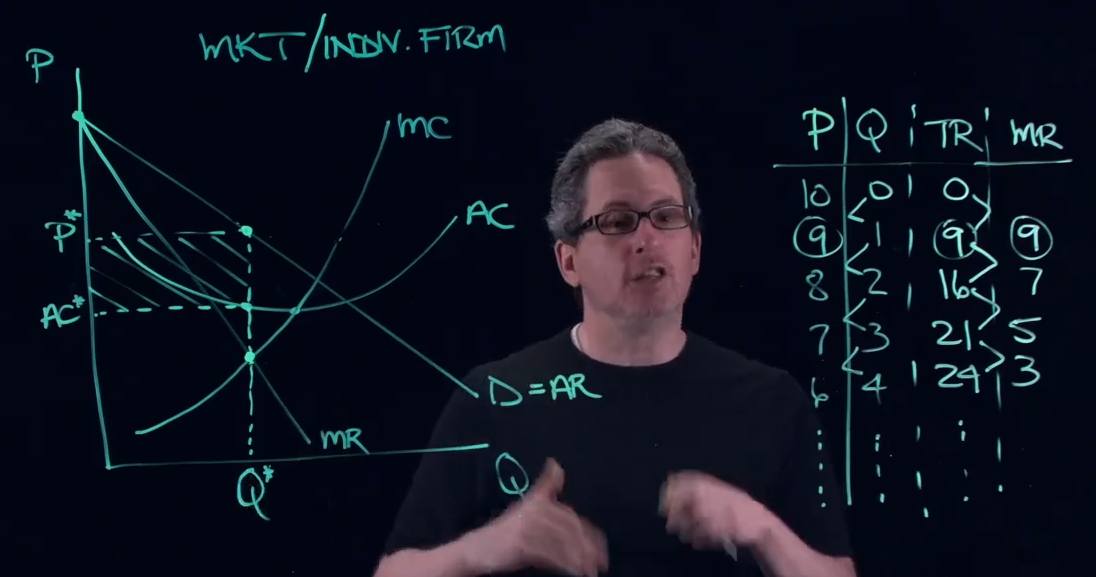 MKT/INDIV. FIRM
P
MC
AC
P*
AC*
D = AR
MR
Q*
Q
P Q TR MR
10 0 0
9 1 9 9
8 2 16 7
7 3 21 5
6 4 24 3